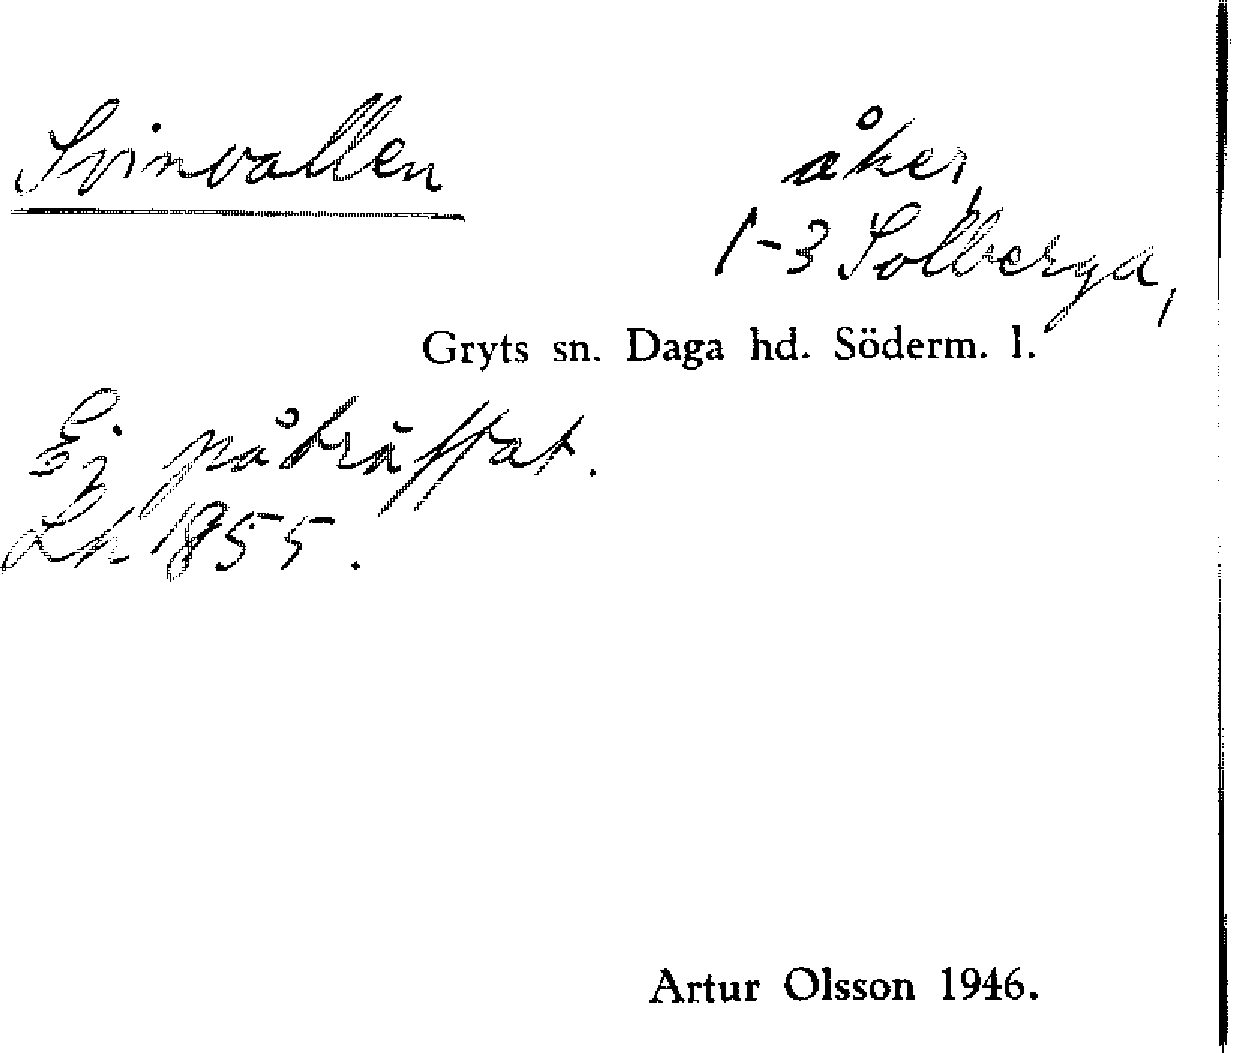 Svinvallen
åker,
1-3 Solberga,
Gryts sn. Daga hd. Söderm. l.
Ej påträffat.
Lh 1855.
Artur Olsson 1946.